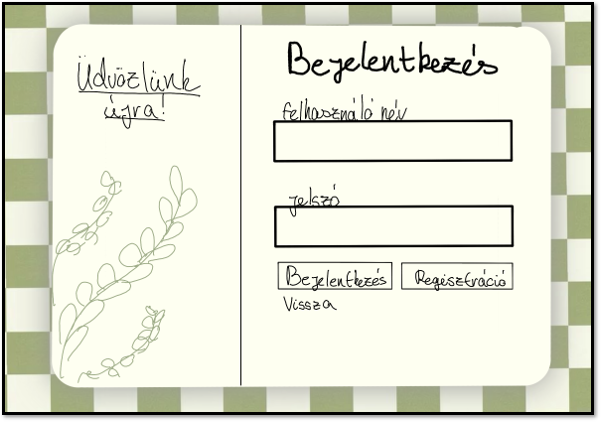 Üdvözlünk
újra!
Bejelentkezés
felhasználó név
jelszó
Bejelentkezés
Regisztráció
Vissza